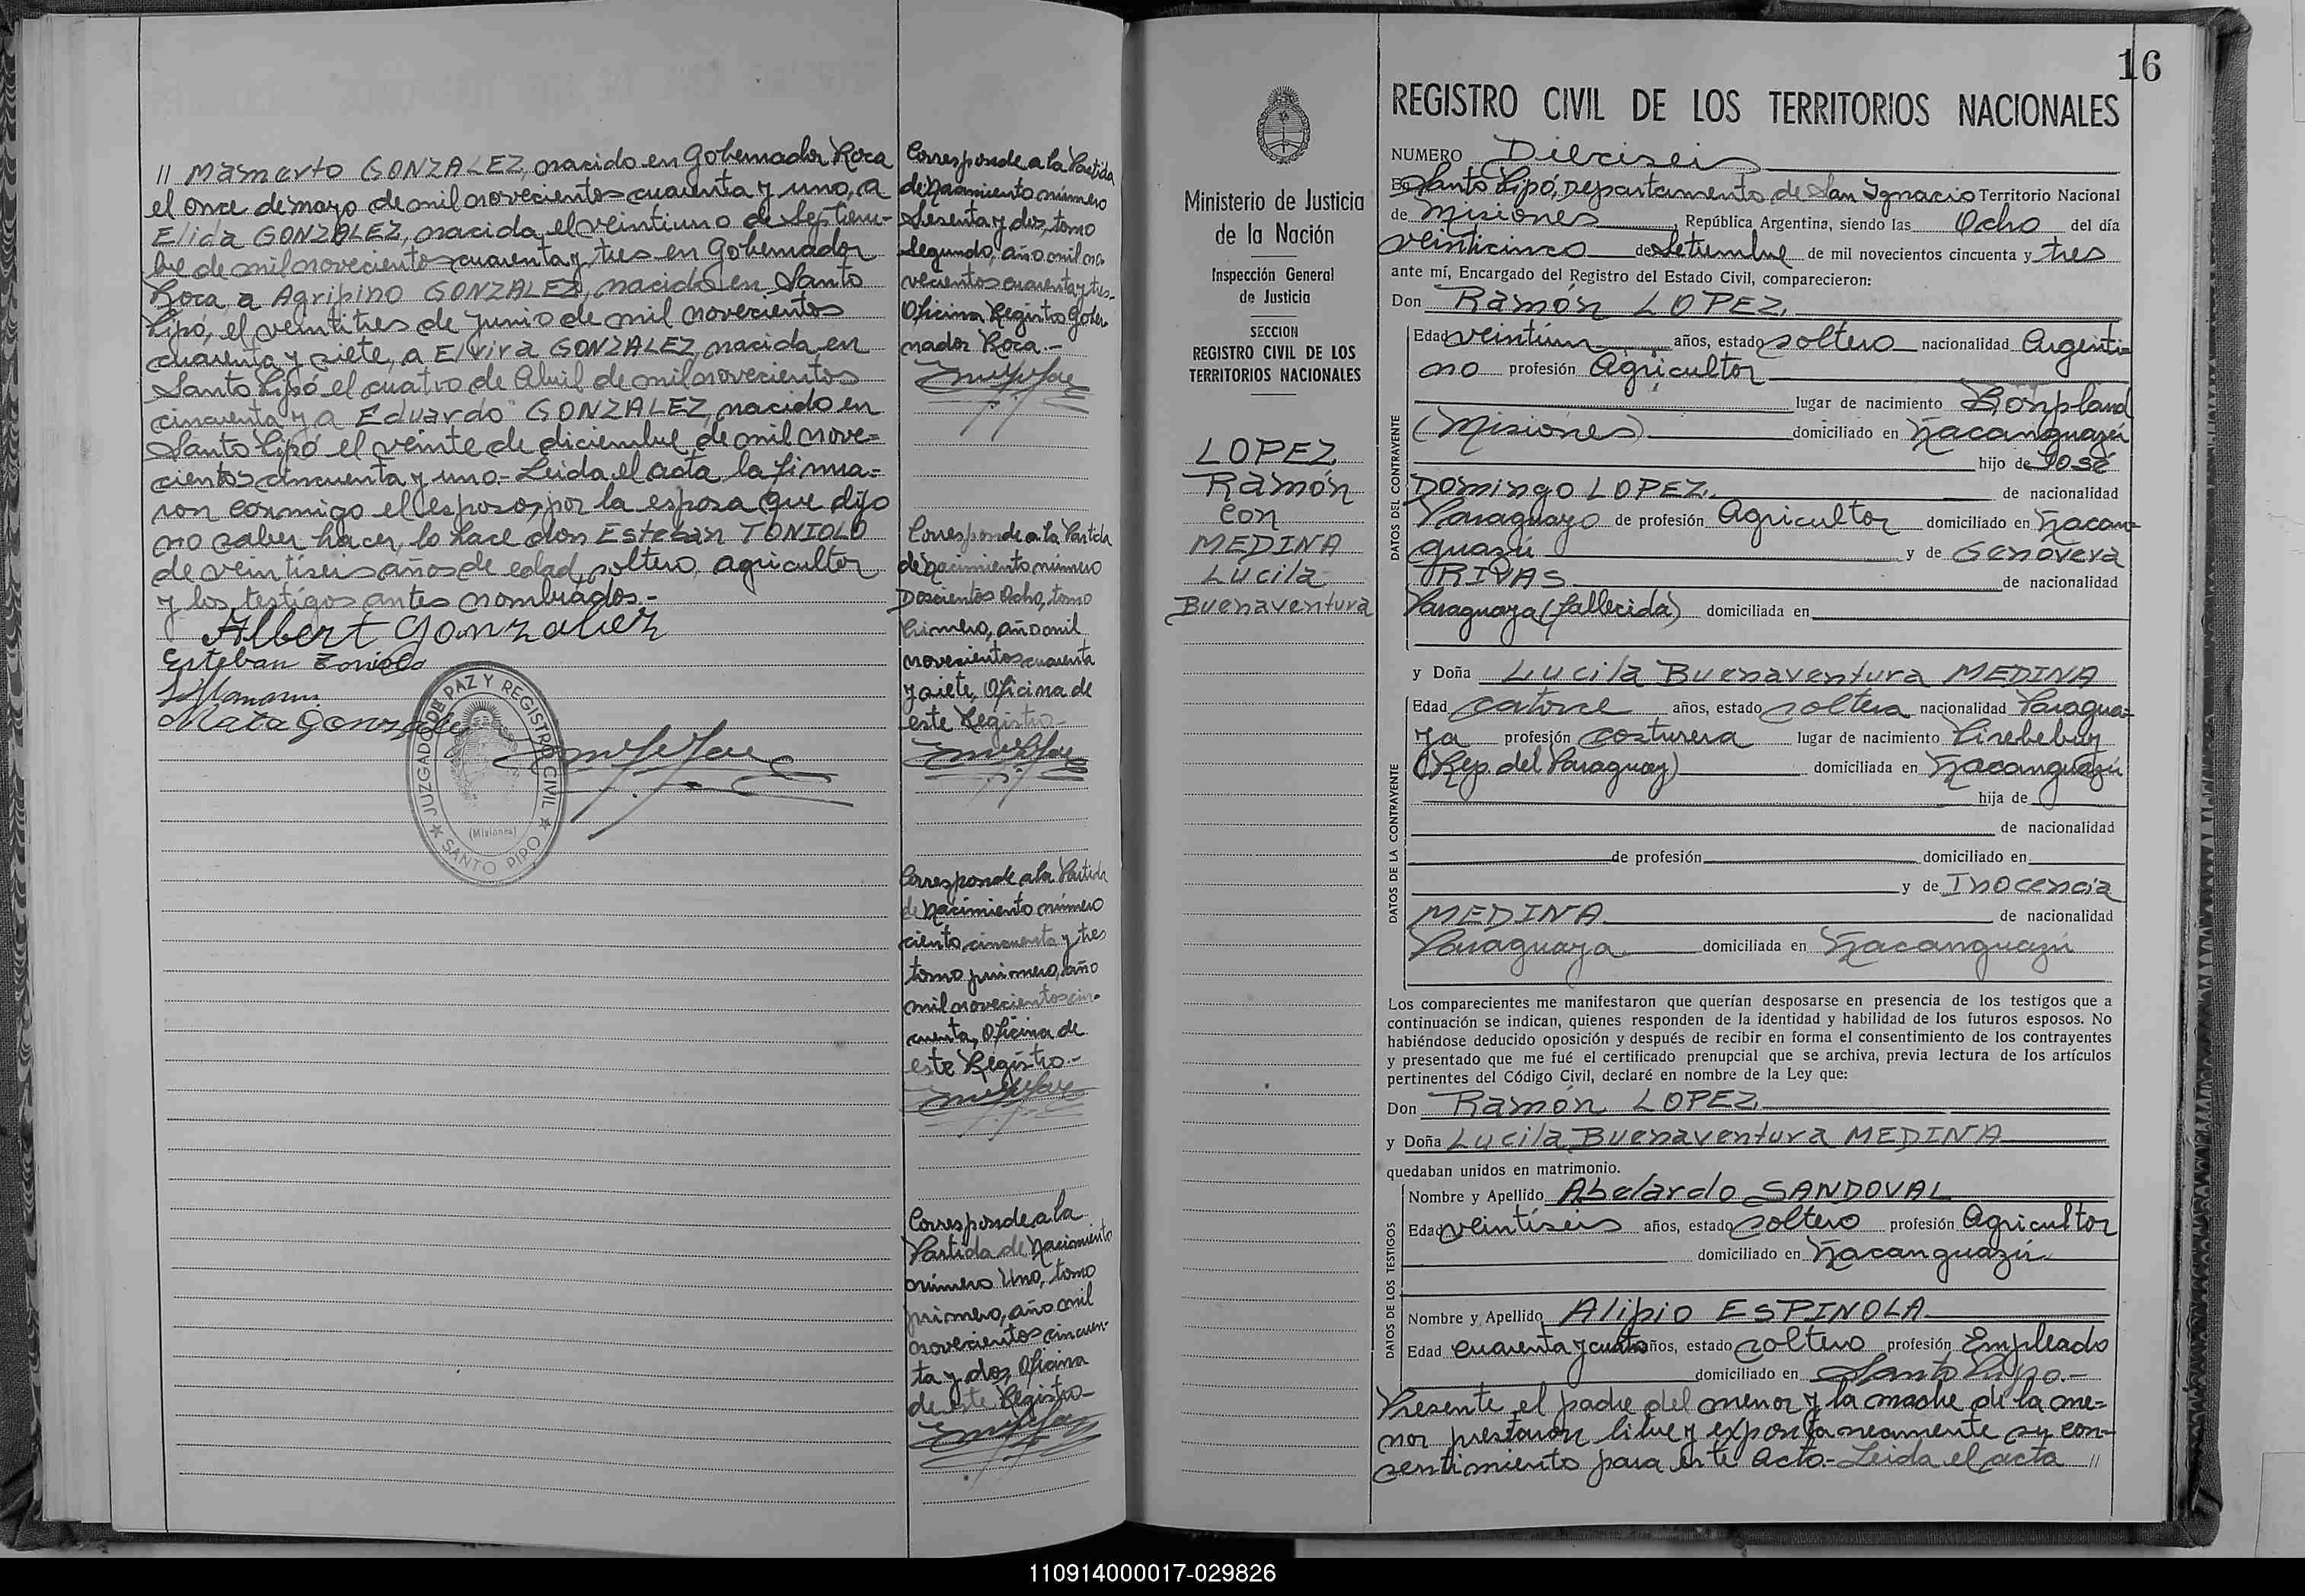 // Mamerto GONZALEZ, nacido en Gobernador Roca
el once de mayo de mil novecientos cuarenta y uno, a
Elida GONZALEZ, nacida el veintiuno de Septiem-
bre de mil novecientos cuarenta y tres en Gobernador
Roca, a Agripino GONZALEZ, nacido en Santo
Pipó, el veintitres de Junio de mil novecientos
cuarenta y siete, a Elvira GONZALEZ, nacida en
Santo Pipó el cuatro de Abril de mil novecientos
cincuenta y a Eduardo GONZALEZ, nacido en
Santo Pipó el veinte de diciembre de mil nove=
cientos cincuenta y uno.- Leida el acta la firma=
ron conmigo el esposo, por la esposa que dijo
no saber hacer, lo hace don Esteban TONIOLO
de veintiseis años de edad, soltero, agricultor
y los testigos antes nombrados.-
Albert Gonzalez
Esteban Toniolo
JUZGADO DE PAZ Y REGISTRO CIVIL
(Misiones)
SANTO PIPO
Corresponde a la Partida
de Nacimiento número
Sesenta y dos, tomo
Segundo, año mil no
vecientos cuarenta y tres.
Oficina Registro Gober
nador Roca.-
Corresponde a la Partida
de Nacimiento número
Doscientos Ocho, tomo
Primero, año mil
novecientos cuarenta
y siete, Oficina de
este Registro-
Corresponde a la Partida
de Nacimiento número
ciento cincuenta y tres
tomo primero, año
mil novecientos cin-
cuenta, Oficina de
este Registro.-
Corresponde a la
Partida de Nacimiento
número Uno, tomo
primero, año mil
novecientos cincuen-
ta y dos, Oficina
de este Registro-
Ministerio de Justicia
de la Nación
Inspección General
de Justicia
SECCION
REGISTRO CIVIL DE LOS
TERRITORIOS NACIONALES
LOPEZ
Ramón
con
MEDINA
Lucila
Buenaventura
16
REGISTRO CIVIL DE LOS TERRITORIOS NACIONALES
NUMERO Dieciseis
En Santo Pipó, Departamento de San Ignacio Territorio Nacional
de Misiones República Argentina, siendo las Ocho del día
veinticinco de Setiembre de mil novecientos cincuenta y tres
ante mí, Encargado del Registro del Estado Civil, comparecieron:
Don Ramón LOPEZ.
DATOS DEL CONTRAYENTE
Edad veintiun años, estado soltero nacionalidad Argenti=
no profesión Agricultor
lugar de nacimiento Bonpland
(Misiones) domiciliado en Ñacanguazú
hijo de José
Domingo LOPEZ. de nacionalidad
Paraguayo de profesión Agricultor domiciliado en Ñacan=
guazú y de Genoveva
RIVAS de nacionalidad
Paraguaya (fallecida) domiciliada en
y Doña Lucila Buenaventura MEDINA
DATOS DE LA CONTRAYENTE
Edad catorce años, estado soltera nacionalidad Paragua=
ya profesión costurera lugar de nacimiento Pirebebuy
(Rep. del Paraguay) domiciliada en Ñacanguazú
hija de
de nacionalidad
de profesión domiciliado en
y de Inocencia
MEDINA de nacionalidad
Paraguaya domiciliada en Ñacanguazú
Los comparecientes me manifestaron que querían desposarse en presencia de los testigos que a
continuación se indican, quienes responden de la identidad y habilidad de los futuros esposos. No
habiéndose deducido oposición y después de recibir en forma el consentimiento de los contrayentes
y presentado que me fué el certificado prenupcial que se archiva, previa lectura de los artículos
pertinentes del Código Civil, declaré en nombre de la Ley que:
Don Ramón LOPEZ.
y Doña Lucila Buenaventura MEDINA
quedaban unidos en matrimonio.
DATOS DE LOS TESTIGOS
Nombre y Apellido Abelardo SANDOVAL
Edad veintiseis años, estado soltero profesión Agricultor
domiciliado en Ñacanguazú
Nombre y Apellido Alipio ESPINOLA
Edad cuarenta y cuatro años, estado soltero profesión Empleado
domiciliado en Santo Pipó.-
Presente el padre del menor y la madre de la me=
nor prestaron libre y expontaneamente su con-
sentimiento para este Acto.- Leida el acta //
110914000017-029826